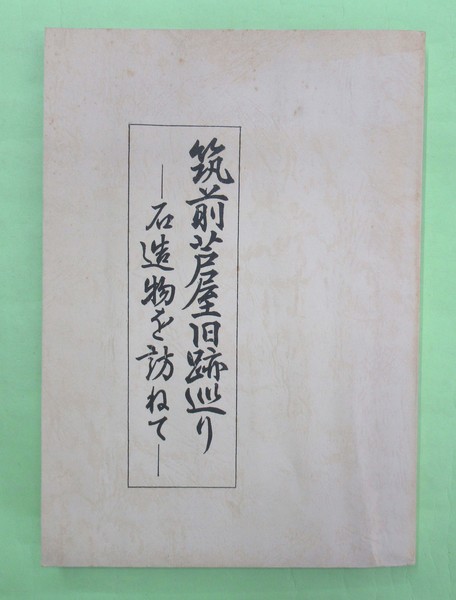 筑前芦屋旧跡巡り
―石造物を訪ねて―